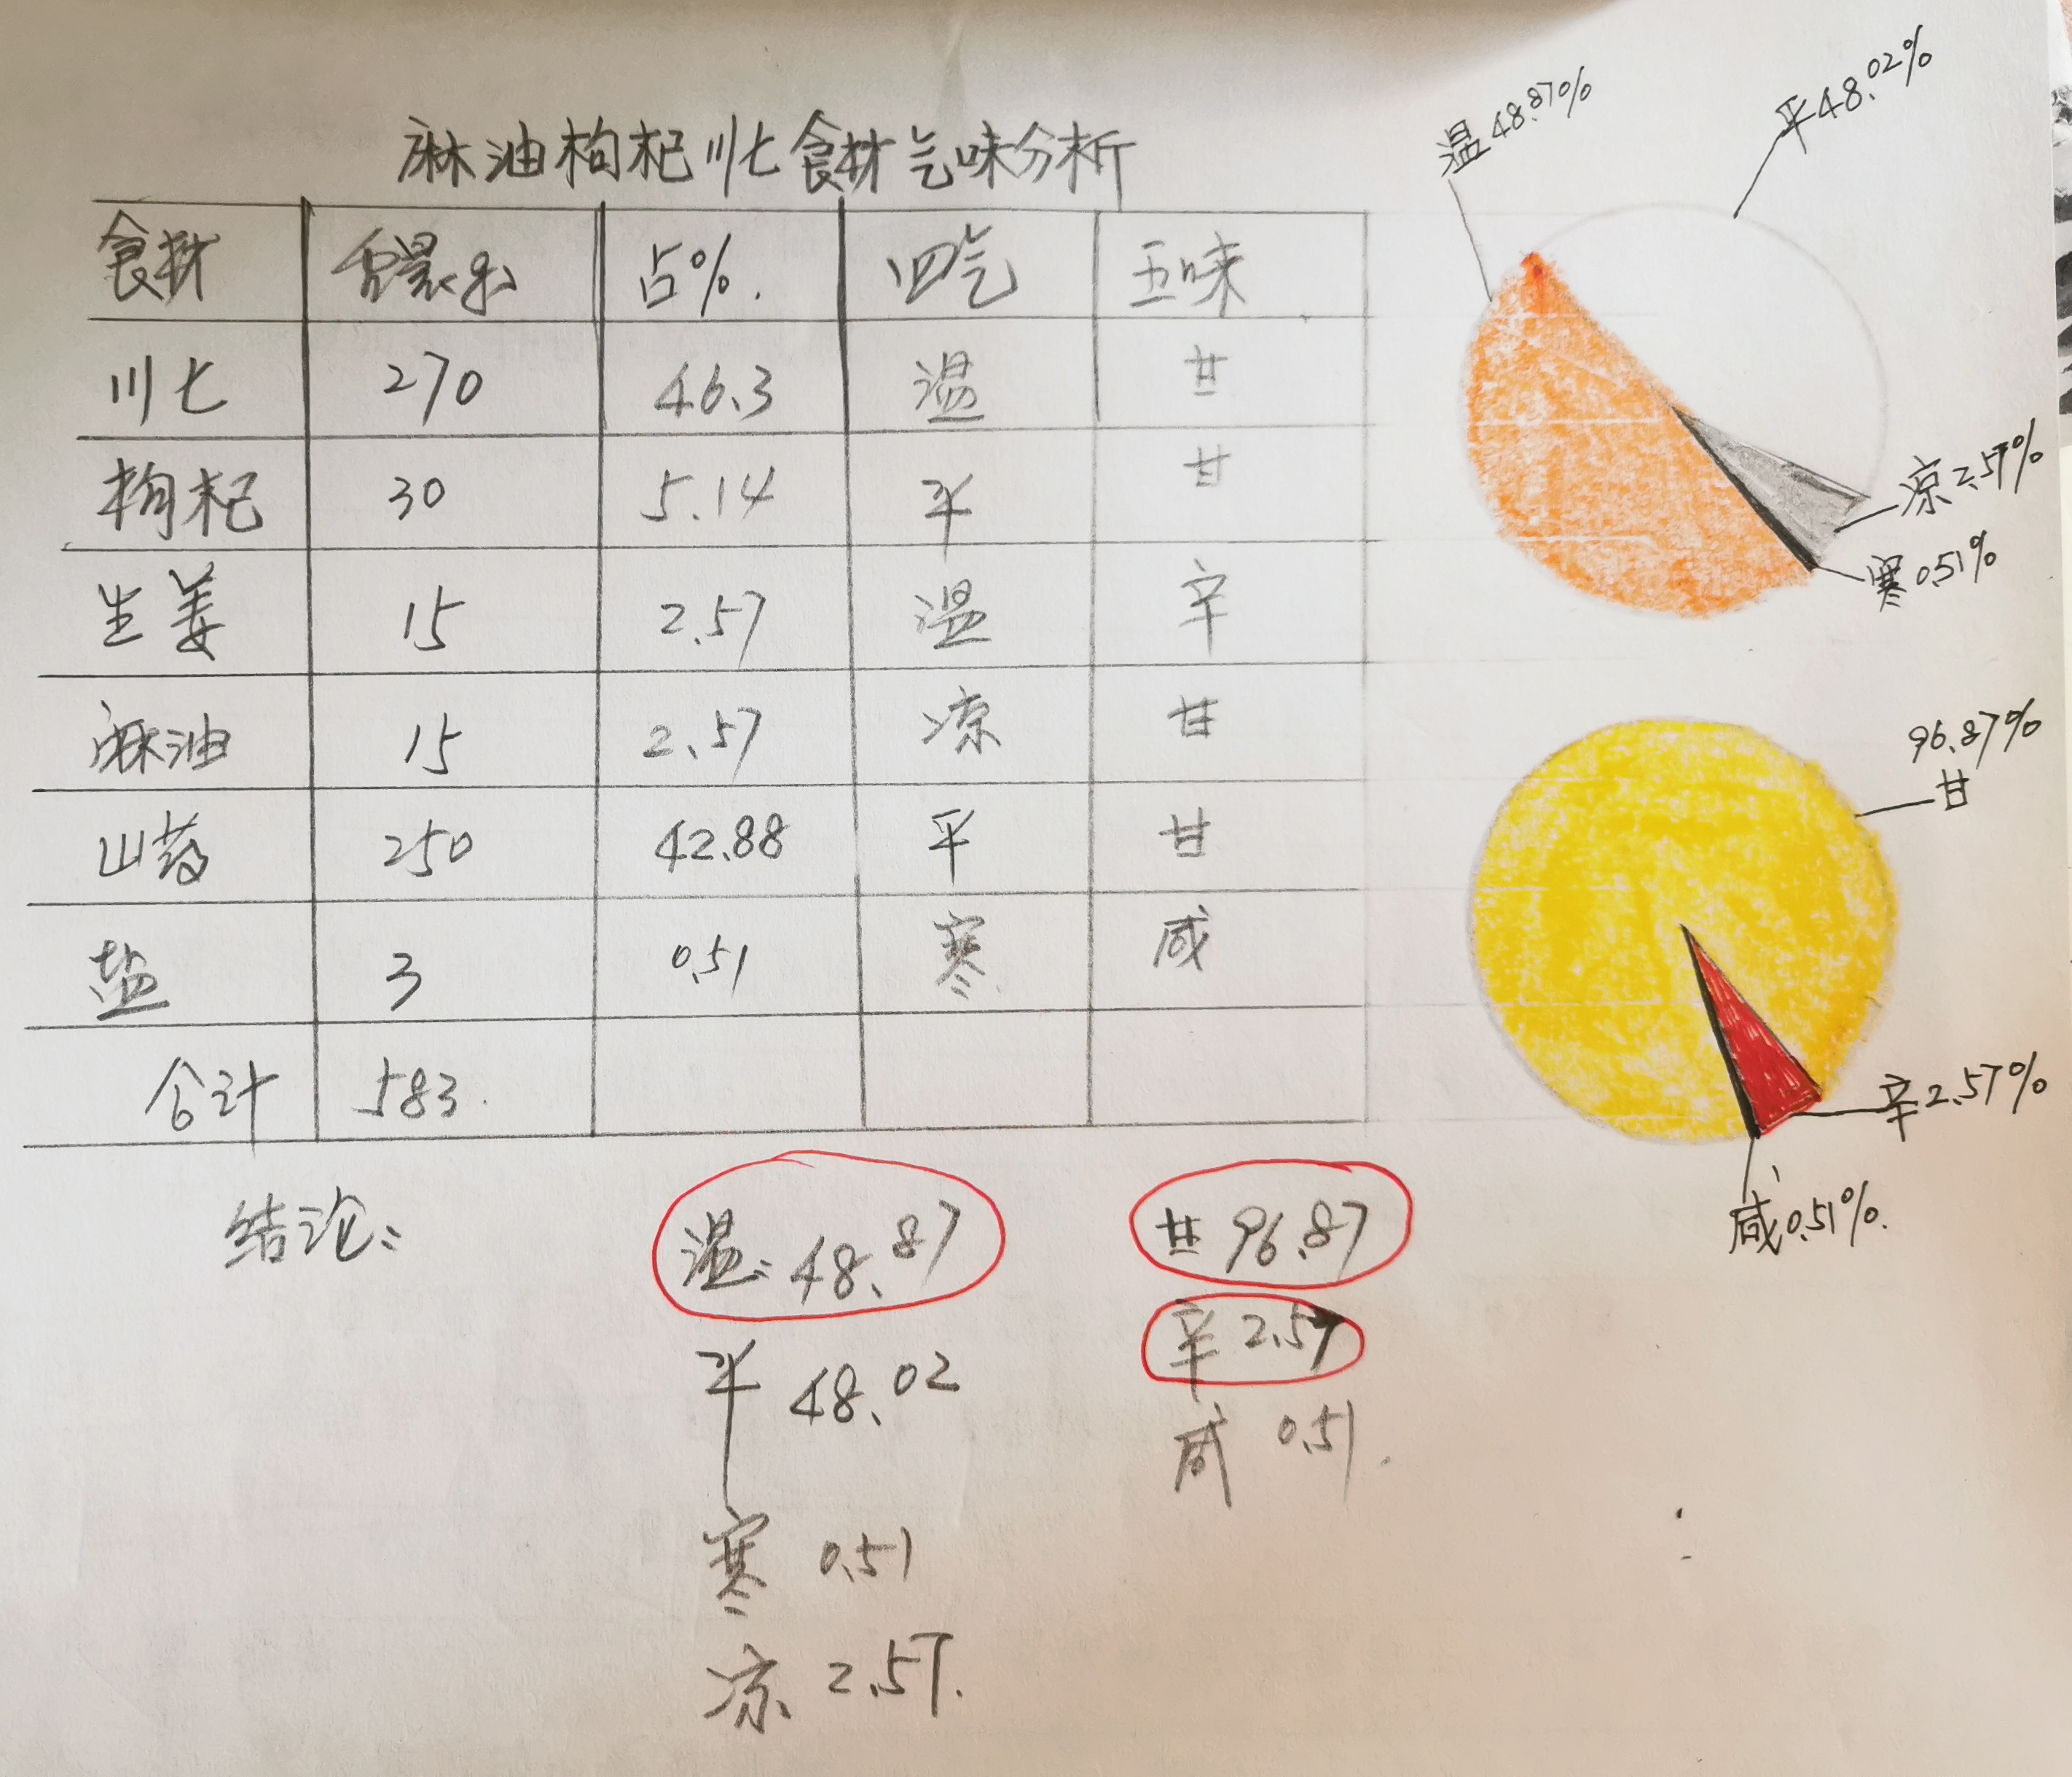 麻油枸杞川七食材气味分析
食材 含量(g) 占%. 四气 五味
川七 270 46.3 温 甘
枸杞 30 5.14 平 甘
生姜 15 2.57 温 辛
麻油 15 2.57 凉 甘
山药 250 42.88 平 甘
盐 3 0.51 寒 咸
合计 583.
结论:
温:48.87
平 48.02
寒 0.51
凉 2.57.
甘 96.87
辛 2.57
咸 0.51.
温48.87%
平48.02%
凉2.57%
寒0.51%
96.87%
甘
辛2.57%
咸0.51%.